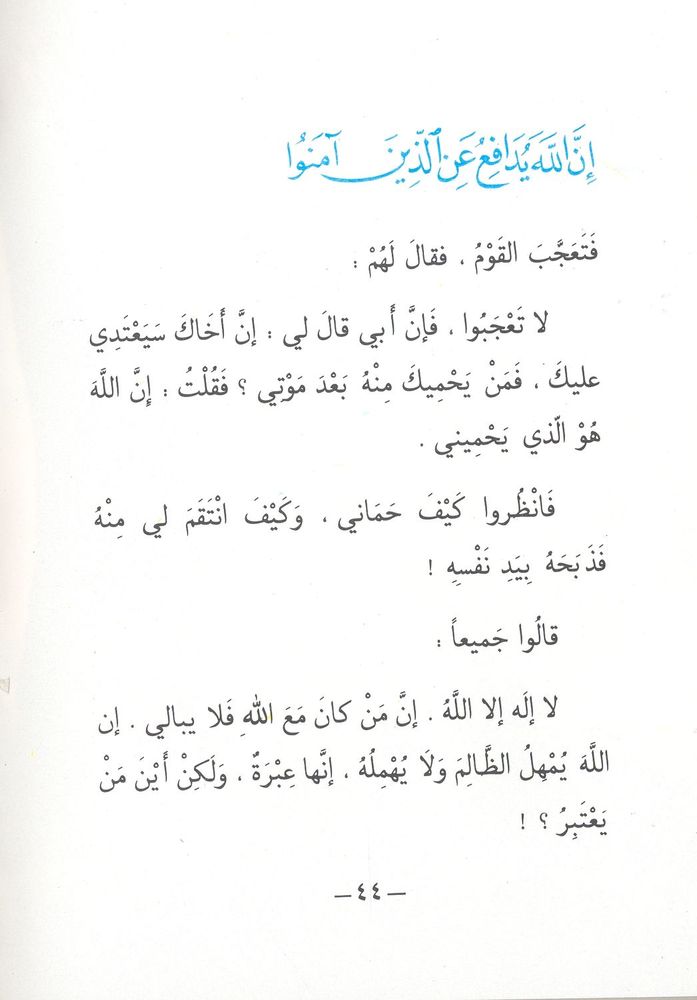 إِنَّ اللَّهَ يُدَافِعُ عَنِ الَّذِينَ آمَنُوا
فَتَعَجَّبَ القَوْمُ ، فقالَ لَهُمْ :
لا تَعْجَبُوا ، فَإنَّ أَبي قالَ لي : إنَّ أَخَاكَ سَيَعْتَدِي
عليكَ ، فَمَنْ يَحْمِيكَ مِنْهُ بَعْدَ مَوْتِي ؟ فَقُلْتُ : إِنَّ اللَّهَ
هُوْ الّذي يَحْمِيني .
فَانْظُروا كَيْفَ حَمَاني ، وَكَيْفَ انْتَقَمَ لي مِنْهُ
فَذَبَحَهُ بِيَدِ نَفْسِهِ !
قالُوا جَميعاً :
لا إلَه إلا اللَّهُ . إنَّ مَنْ كانَ مَعَ اللهِ فَلا يبالي . إن
اللَّهَ يُمْهِلُ الظَّالِمَ وَلَا يُهْمِلُهُ ، إنَّها عِبْرَةٌ ، وَلَكِنْ أَيْنَ مَنْ
يَعْتَبِرُ ؟ !
— ٤٤ —